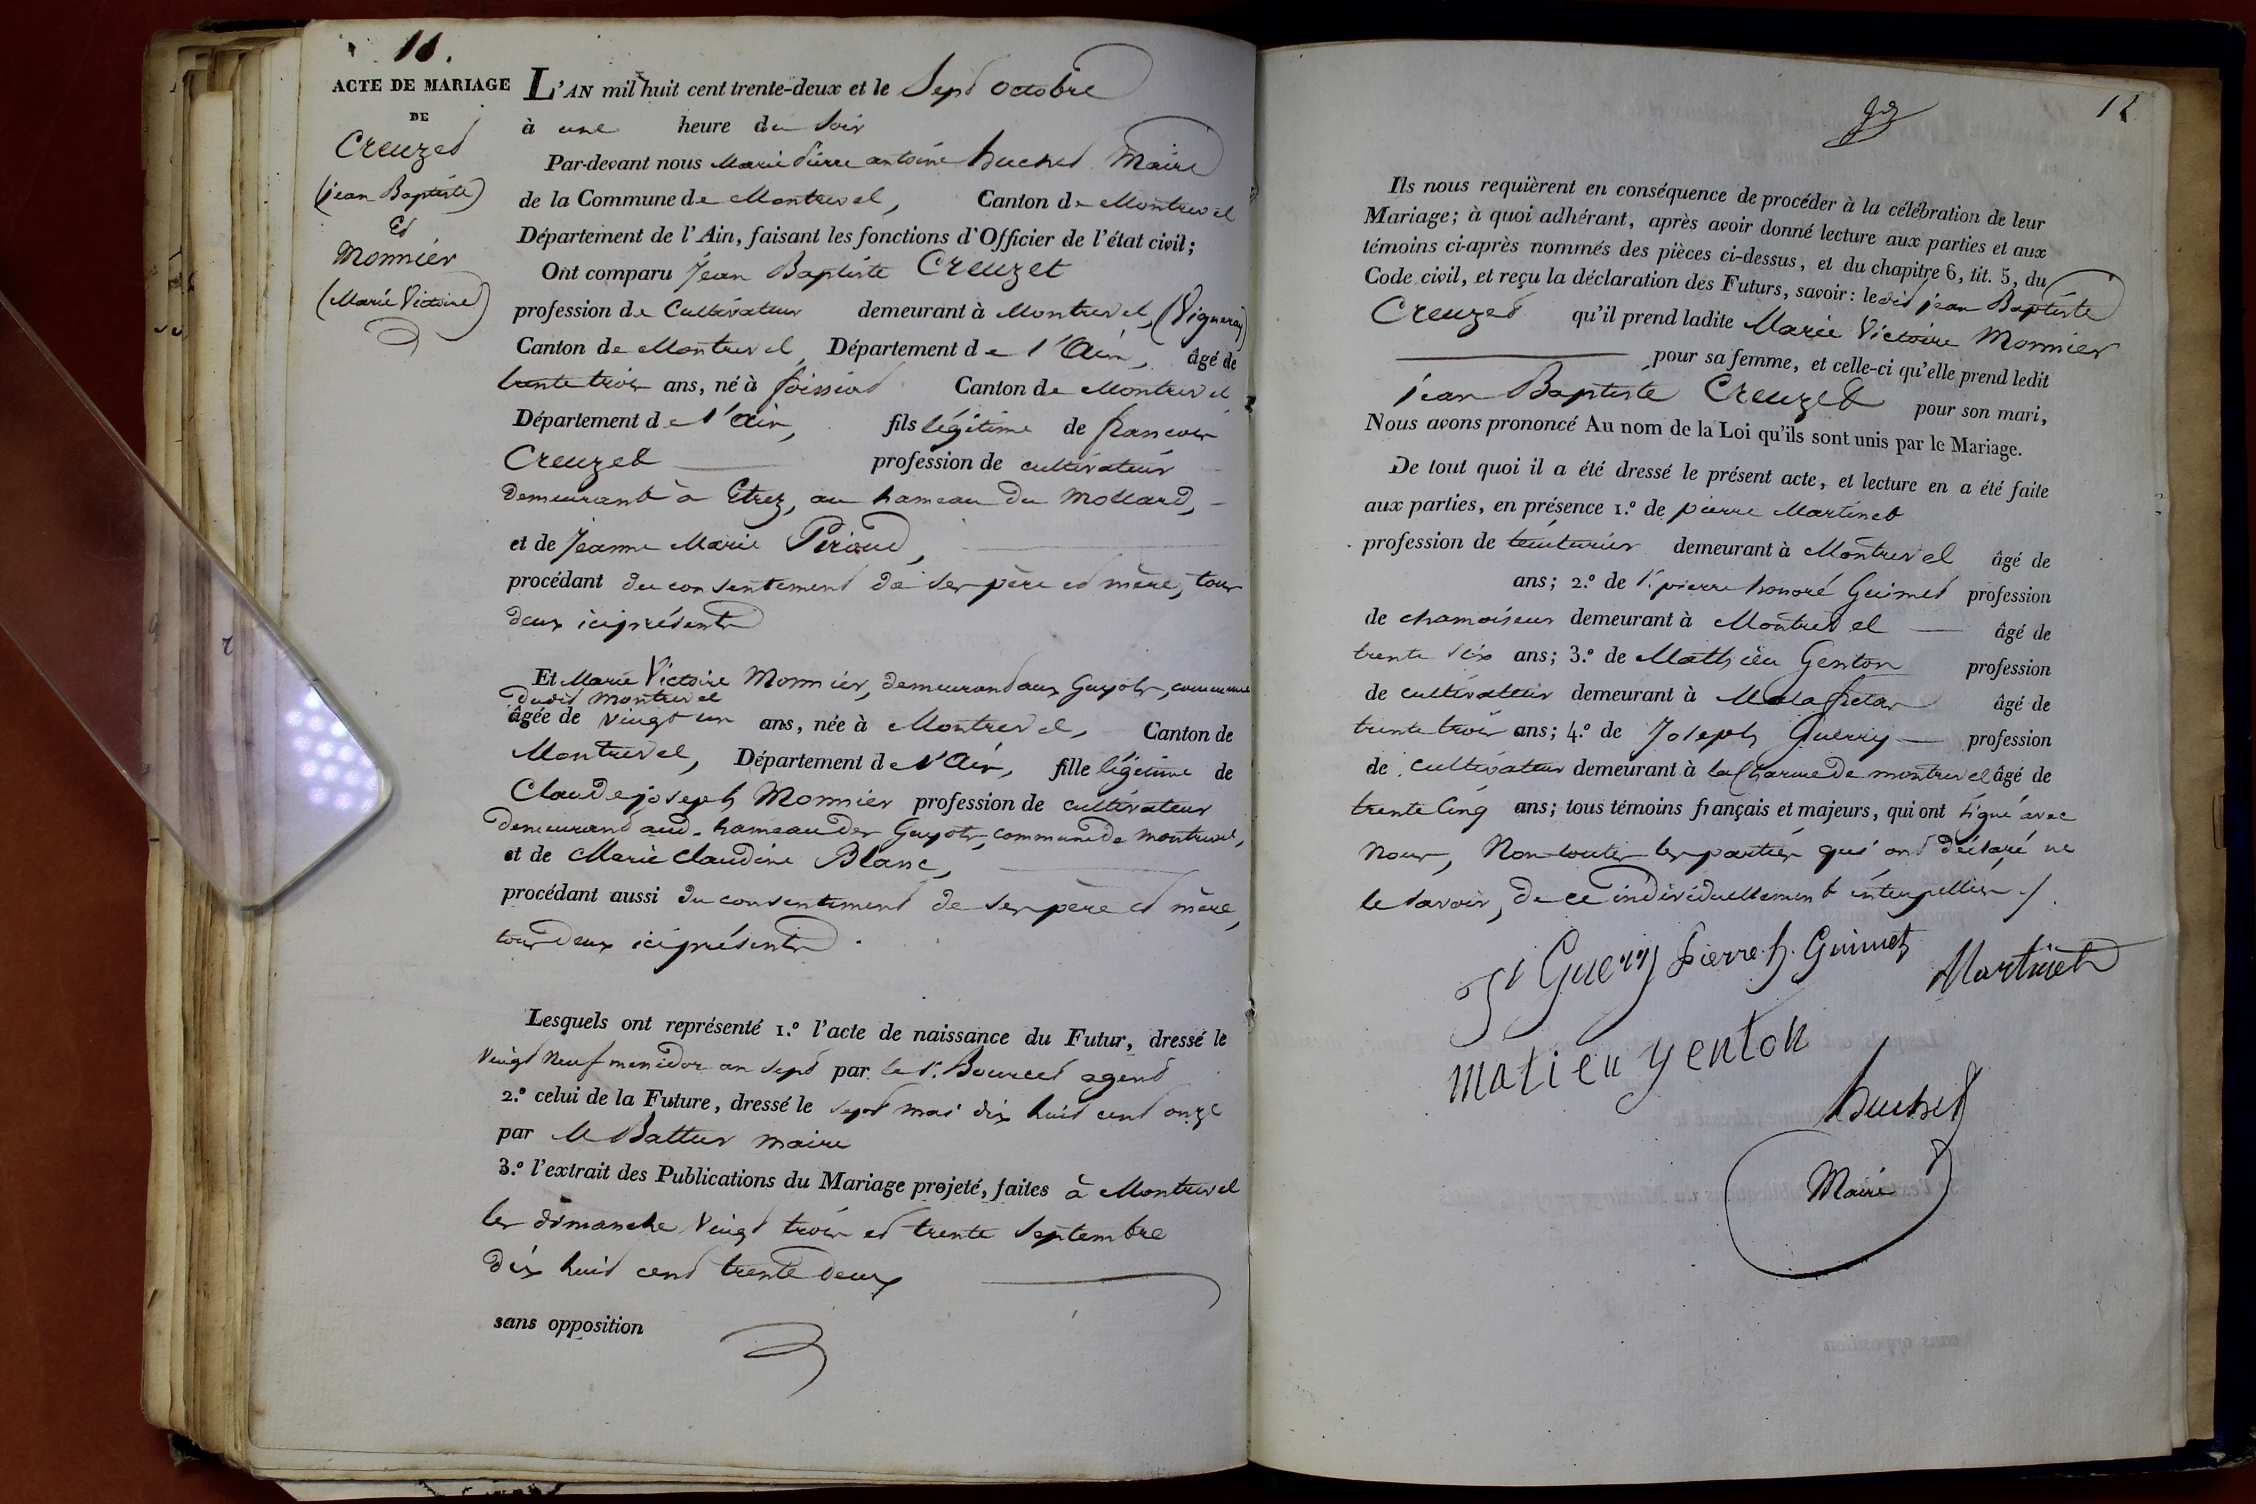 11.
ACTE DE MARIAGE
DE
Creuzet
(jean Baptiste)
Et
Monnier
(Marie Victoire)
L'AN mil huit cent trente-deux et le Sept octobre
à une heure du soir
Par-devant nous Marie Pierre antoine huchet Maire
de la Commune de Montrevel, Canton de Montrevel
Département de l'Ain, faisant les fonctions d'Officier de l'état civil;
Ont comparu Jean Baptiste Creuzet
profession de Cultivateur demeurant à Montrevel, (Vigneray)
Canton de Montrevel, Département de l'Ain, âgé de
trente trois ans, né à foissiat Canton de Montrevel
Département de l'Ain, fils légitime de francois
Creuzet profession de cultivateur
demeurant à Etrez, au hameau du Mollard,
et de Jeanne Marie Piroud,
procédant du consentement de ses père et mère, tous
deux ici présents
Et Marie Victoire Monnier, demeurant aux Guyots, commune
dudit Montrevel
âgée de vingt un ans, née à Montrevel, Canton de
Montrevel, Département de l'Ain, fille légitime de
Claude joseph Monnier profession de cultivateur
demeurant aud. hameau des Guyots, commune de Montrevel,
et de Marie Claudine Blanc,
procédant aussi du consentement de ses père et mère,
tous deux ici présents.
Lesquels ont représenté 1.º l'acte de naissance du Futur, dressé le
Vingt Neuf messidor an sept par le Sr. Bourcet agent
2.º celui de la Future, dressé le sept mai dix huit cent onze
par M Battur maire
3.º l'extrait des Publications du Mariage projeté, faites à Montrevel
les dimanche Vingt trois et trente septembre
dix huit cent trente deux
sans opposition
12
Ils nous requièrent en conséquence de procéder à la célébration de leur
Mariage; à quoi adhérant, après avoir donné lecture aux parties et aux
témoins ci-après nommés des pièces ci-dessus, et du chapitre 6, tit. 5, du
Code civil, et reçu la déclaration des Futurs, savoir: ledit jean Baptiste
Creuzet qu'il prend ladite Marie Victoire Monnier
pour sa femme, et celle-ci qu'elle prend ledit
jean Baptiste Creuzet pour son mari,
Nous avons prononcé Au nom de la Loi qu'ils sont unis par le Mariage.
De tout quoi il a été dressé le présent acte, et lecture en a été faite
aux parties, en présence 1.º de pierre Martinet
profession de teinturier demeurant à Montrevel âgé de
ans; 2.º de Sr. pierre honoré Guimet profession
de chamoiseur demeurant à Montrevel âgé de
trente six ans; 3.º de Mathieu Genton profession
de cultivateur demeurant à Malafretaz âgé de
trente trois ans; 4.º de Joseph Guerry profession
de cultivateur demeurant à la Charme de montrevel âgé de
trente Cinq ans; tous témoins français et majeurs, qui ont signé avec
Nous, Non toutes les parties qui ont déclaré ne
le savoir, de ce individuellement interpellées./.
Guerry Pierre h. Guimet
Martinet
matieu genton
huchet
Maire